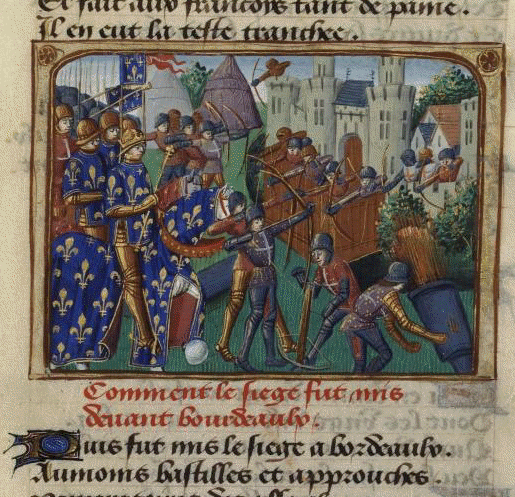 Et fait aux francois tant de paine.
Il en eut la teste tranchee.
Comment le siege fut mis
deuant bourdeaulx.
Puis fut mis le siege a bordeaulx.
Aumoins bastilles et approuches.